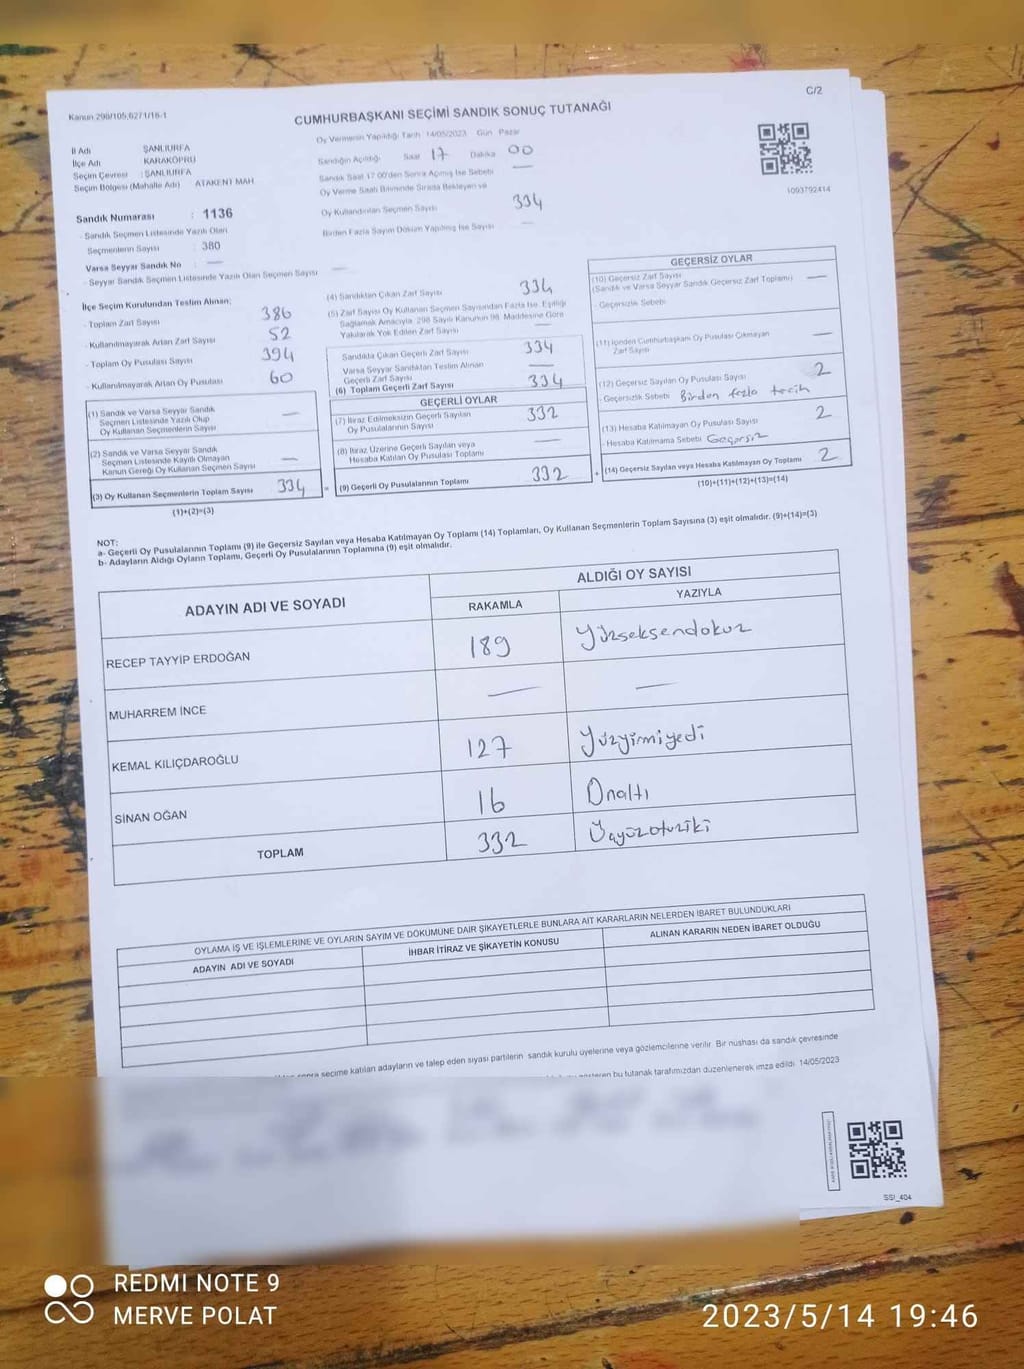 C/2
Kanun 298/105,6271/16-1
CUMHURBAŞKANI SEÇİMİ SANDIK SONUÇ TUTANAĞI
İl Adı : ŞANLIURFA
İlçe Adı : KARAKÖPRÜ
Seçim Çevresi : ŞANLIURFA
Seçim Bölgesi (Mahalle Adı) : ATAKENT MAH
Sandık Numarası : 1136
- Sandık Seçmen Listesinde Yazılı Olan
Seçmenlerin Sayısı : 380
Varsa Seyyar Sandık No : —
- Seyyar Sandık Seçmen Listesinde Yazılı Olan Seçmen Sayısı —
Oy Vermenin Yapıldığı Tarih : 14/05/2023 Gün : Pazar
Sandığın Açıldığı Saat 17 Dakika 00
Sandık Saat 17:00'den Sonra Açılmış İse Sebebi —
Oy Verme Saati Bitiminde Sırada Bekleyen ve
Oy Kullandırılan Seçmen Sayısı 334
Birden Fazla Sayım Döküm Yapılmış İse Sayısı —
1093792414
İlçe Seçim Kurulundan Teslim Alınan;
- Toplam Zarf Sayısı 386
- Kullanılmayarak Artan Zarf Sayısı 52
- Toplam Oy Pusulası Sayısı 394
- Kullanılmayarak Artan Oy Pusulası 60
(1) Sandık ve Varsa Seyyar Sandık
Seçmen Listesinde Yazılı Olup
Oy Kullanan Seçmenlerin Sayısı —
(2) Sandık ve Varsa Seyyar Sandık
Seçmen Listesinde Kayıtlı Olmayan
Kanun Gereği Oy Kullanan Seçmen Sayısı —
(3) Oy Kullanan Seçmenlerin Toplam Sayısı 334
(1)+(2)=(3)
(4) Sandıktan Çıkan Zarf Sayısı 334
(5) Zarf Sayısı Oy Kullanan Seçmen Sayısından Fazla İse, Eşitliği
Sağlamak Amacıyla, 298 Sayılı Kanunun 98. Maddesine Göre
Yakılarak Yok Edilen Zarf Sayısı —
Sandıkta Çıkan Geçerli Zarf Sayısı 334
Varsa Seyyar Sandıktan Teslim Alınan
Geçerli Zarf Sayısı —
(6) Toplam Geçerli Zarf Sayısı 334
GEÇERLİ OYLAR
(7) İtiraz Edilmeksizin Geçerli Sayılan
Oy Pusulalarının Sayısı 332
(8) İtiraz Üzerine Geçerli Sayılan veya
Hesaba Katılan Oy Pusulası Toplamı —
= (9) Geçerli Oy Pusulalarının Toplamı 332 +
GEÇERSİZ OYLAR
(10) Geçersiz Zarf Sayısı
(Sandık ve Varsa Seyyar Sandık Geçersiz Zarf Toplamı) —
- Geçersizlik Sebebi
(11) İçinden Cumhurbaşkanı Oy Pusulası Çıkmayan
Zarf Sayısı —
(12) Geçersiz Sayılan Oy Pusulası Sayısı 2
- Geçersizlik Sebebi Birden fazla tercih
(13) Hesaba Katılmayan Oy Pusulası Sayısı 2
- Hesaba Katılmama Sebebi Geçersiz
(14) Geçersiz Sayılan veya Hesaba Katılmayan Oy Toplamı 2
(10)+(11)+(12)+(13)=(14)
NOT:
a- Geçerli Oy Pusulalarının Toplamı (9) ile Geçersiz Sayılan veya Hesaba Katılmayan Oy Toplamı (14) Toplamları, Oy Kullanan Seçmenlerin Toplam Sayısına (3) eşit olmalıdır. (9)+(14)=(3)
b- Adayların Aldığı Oyların Toplamı, Geçerli Oy Pusulalarının Toplamına (9) eşit olmalıdır.
ADAYIN ADI VE SOYADI ALDIĞI OY SAYISI
RAKAMLA YAZIYLA
RECEP TAYYİP ERDOĞAN 189 Yüzseksendokuz
MUHARREM İNCE — —
KEMAL KILIÇDAROĞLU 127 Yüzyirmiyedi
SİNAN OĞAN 16 Onaltı
TOPLAM 332 Üçyüzotuziki
OYLAMA İŞ VE İŞLEMLERİNE VE OYLARIN SAYIM VE DÖKÜMÜNE DAİR ŞİKAYETLERLE BUNLARA AİT KARARLARIN NELERDEN İBARET BULUNDUKLARI
ADAYIN ADI VE SOYADI İHBAR İTİRAZ VE ŞİKAYETİN KONUSU ALINAN KARARIN NEDEN İBARET OLDUĞU
sonra seçime katılan adayların ve talep eden siyasi partilerin sandık kurulu üyelerine veya gözlemcilerine verilir. Bir nüshası da sandık çevresinde
gösteren bu tutanak tarafımızdan düzenlenerek imza edildi. 14/05/2023
SSI_404
REDMI NOTE 9
MERVE POLAT
2023/5/14 19:46